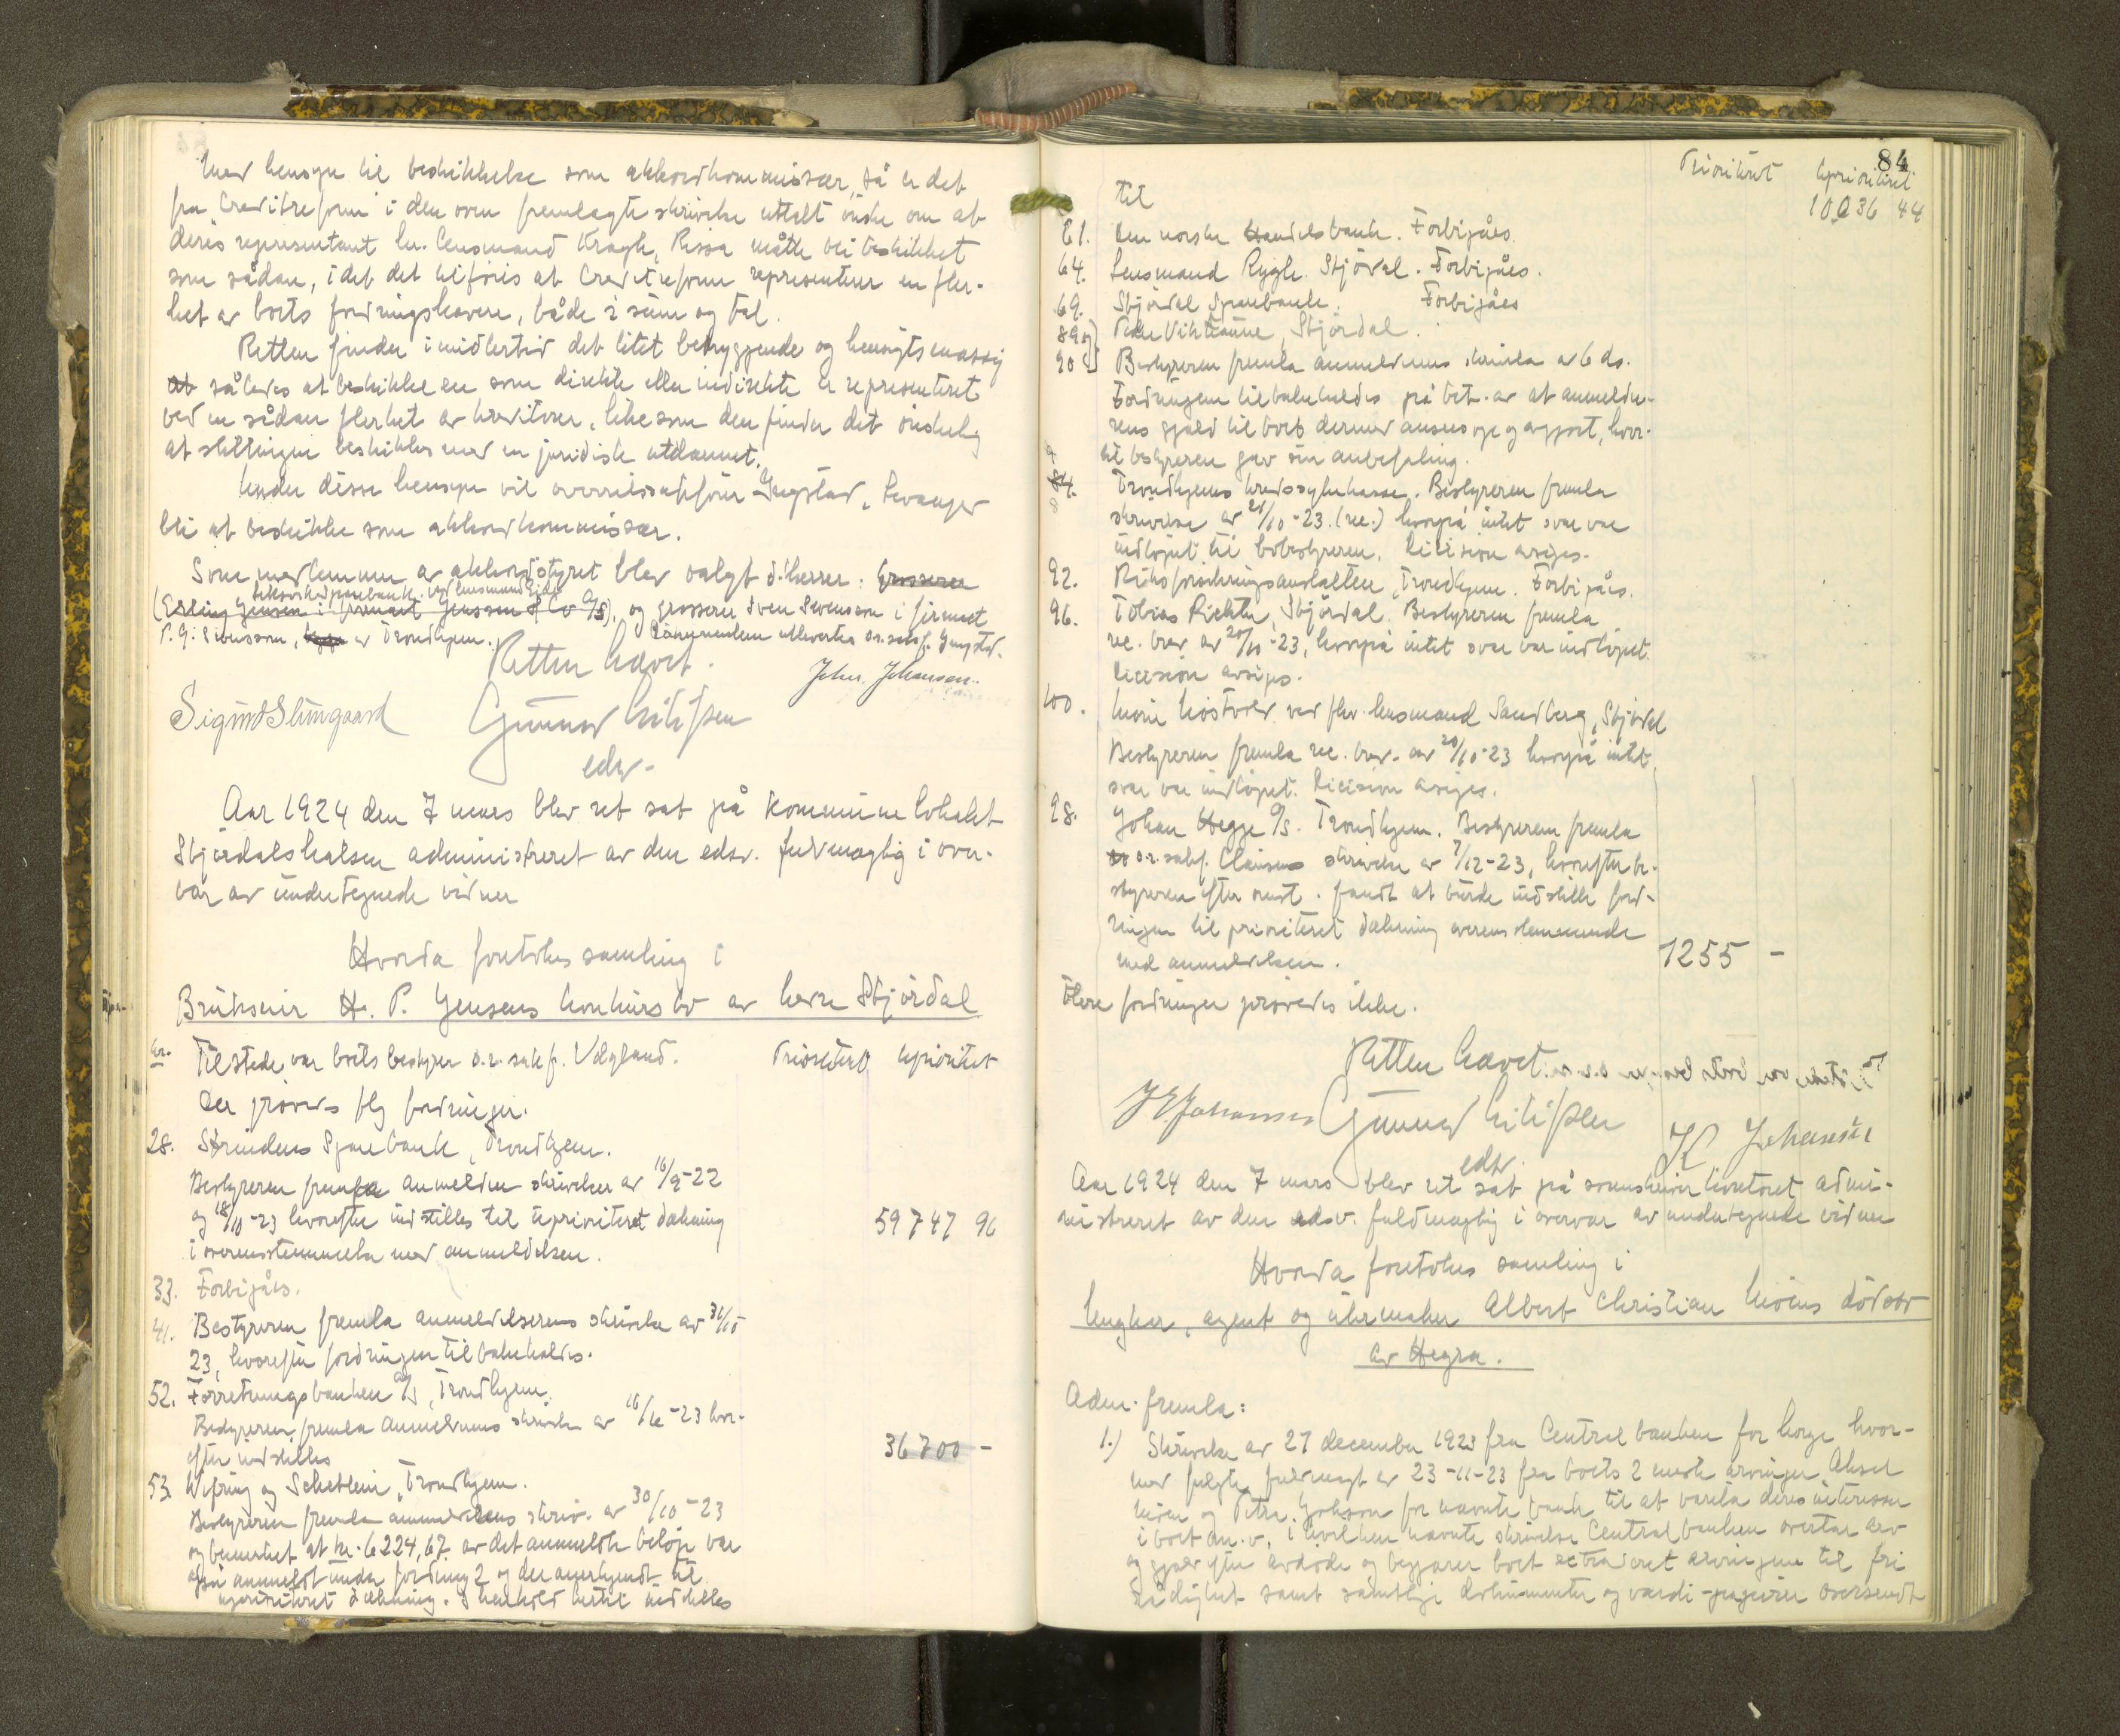 Med hensyn til beskikkelse som akkordkommissær, så er det
fra "Creditreform" i den oven fremlagte skrivelse uttalt ønske om at
deres representant hr. lensmand Kragh, Rissa måtte bli beskikket
som sådan, idet det tilføies at Creditreform representerer en fler-
het av boets fordringshavere, både i sum og tal.
Retten finder imidlertid det litet betryggende og hensigtsmæssig
at således at beskikke en som direkte eller indirekte er representeret
ved en sådan flerhet av kreditorer, likesom den finder det ønskelig
at stillingen beskikkes med en juridisk utdannet.
Under disse hensyn vil overretssakfører Ingstad, Levanger
bli at beskikke som akkordkommissær.
Som medlemmer av akkordstyret blev valgt d'herrer: Grosserer
Sparebank ved lensmand
(Erling Jensen i firmaet Jenssen & Co A/S), og grosserer Sven Svensson i firmaet
P. G. Svensson, av Trondhjem.
utleveres o.r.sakf. Ingstad.
Retten hævet.
Johs. Johansen.
Sigurd Slungaard
Gunnar
edsv.
Aar 1924 den 7 mars blev ret sat på kommunelokalet
Stjørdalshalsen administreret av den edsv. fuldmægtig i over-
vær av undertegnede vidner
Hvorda foretokes samling i
Brukseier H. P. Jensens konkursbo av Nedre Stjørdal
Nr. Tilstede var boets bestyrer o.r.sakf. Velgland. Prioritet Uprioritet
Der prøves flg fordringer.
28. Strindens Sparebank, Trondhjem.
Bestyreren fremla anmeldern skrivelser av 16/9-22
og 18/10-23 hvorefter indstilles til uprioritert dækning 59747 96
i overensstemmelse med anmeldelsen.
33. Forbigåes.
41. Bestyreren fremla anmelderens skrivelse av 31/10
23, hvorefter fordringen tilbakeholdes.
52. Forretningsbanken A/S, Trondhjem.
Bestyreren fremla anmelderens skrivelse av 16/10-23 hvor-
efter indstilles 36700 -
53. Wifring og Scheblein, Trondhjem.
Bestyreren fremla anmelderens skriv. av 30/10-23
og bemerket at kr. 6224,67 av det anmeldte beløp var
også anmeldt under fordring 2 og der anerkjendt til
uprioriteret dækning. I henhold hertil indstilles
84
Prioritet Uprioritet
Til 10036 44
61. Den norske Handelsbank. Forbigåes.
64. Lensmand Rygh. Stjørdal. Forbigåes.
69. Stjørdal Sparebank. Forbigåes
89 og Peder Viktianne, Stjørdal.
90 Bestyreren fremla anmelderens skrivelse av 6 ds.
Fordringen tilbakeholdes på bet. av at anmelde-
rens gjæld til boet dermed ansees opgjort, hvor-
til bestyreren gav sin anbefaling.
84. Trondhjems kredssykekasse. Bestyreren fremla
skrivelse av 20/10-23. (rec.) hvorpå intet svar var
indløpet til bobestyreren. Decision avsiges.
92. Riksforsikringsanstalten, Trondhjem. Forbigåes.
96. Tobias Richter, Stjørdal. Bestyreren fremla
rec. brev av 20/10-23, hvorpå intet svar var indløpet.
Decision avsiges.
100. ved fhv. lensmand Sandberg, Stjørdal
Bestyreren fremla rec. brev av 20/10-23 hvorpå intet
svar var indløpet. Decision avsiges.
98. Johan Hegge A/S. Trondhjem. Bestyreren fremla
o.r.sakf. Clausens skrivelse av 7/12-23, hvorefter be-
styreren efter omst. fandt at burde indstille ford-
ringen til prioriteret dækning overensstemmende
med anmeldelsen. 1255 -
Flere fordringer prøvedes ikke.
Retten hævet.
J E Johansen Gunnar
edsv.
K Johansen
Aar 1924 den 7 mars blev ret sat på sorenskriverkontoret admi-
nistreret av den edsv. fuldmægtig i overvær av undertegnede vidner
Hvorda foretokes samling i
Ungkar, agent og uhrmaker Albert Christian Moens dødsbo
av Hegra.
Adm. fremla:
1.) Skrivelse av 27 december 1923 fra Centralbanken for Norge hvor-
med fulgte fuldmagt av 23-11-23 fra boets 2 arvinger Aksel
Moen og Petra Johnson for nævnte bank til at vareta deres interesser
i boet m.v., i hvilken nævnte skrivelse Centralbanken overtar arv
og gjæld efter avdøde og begjærer boet extraderet arvingene til fri
rådighet samt samtlige dokumenter og værdi-papirer oversendt